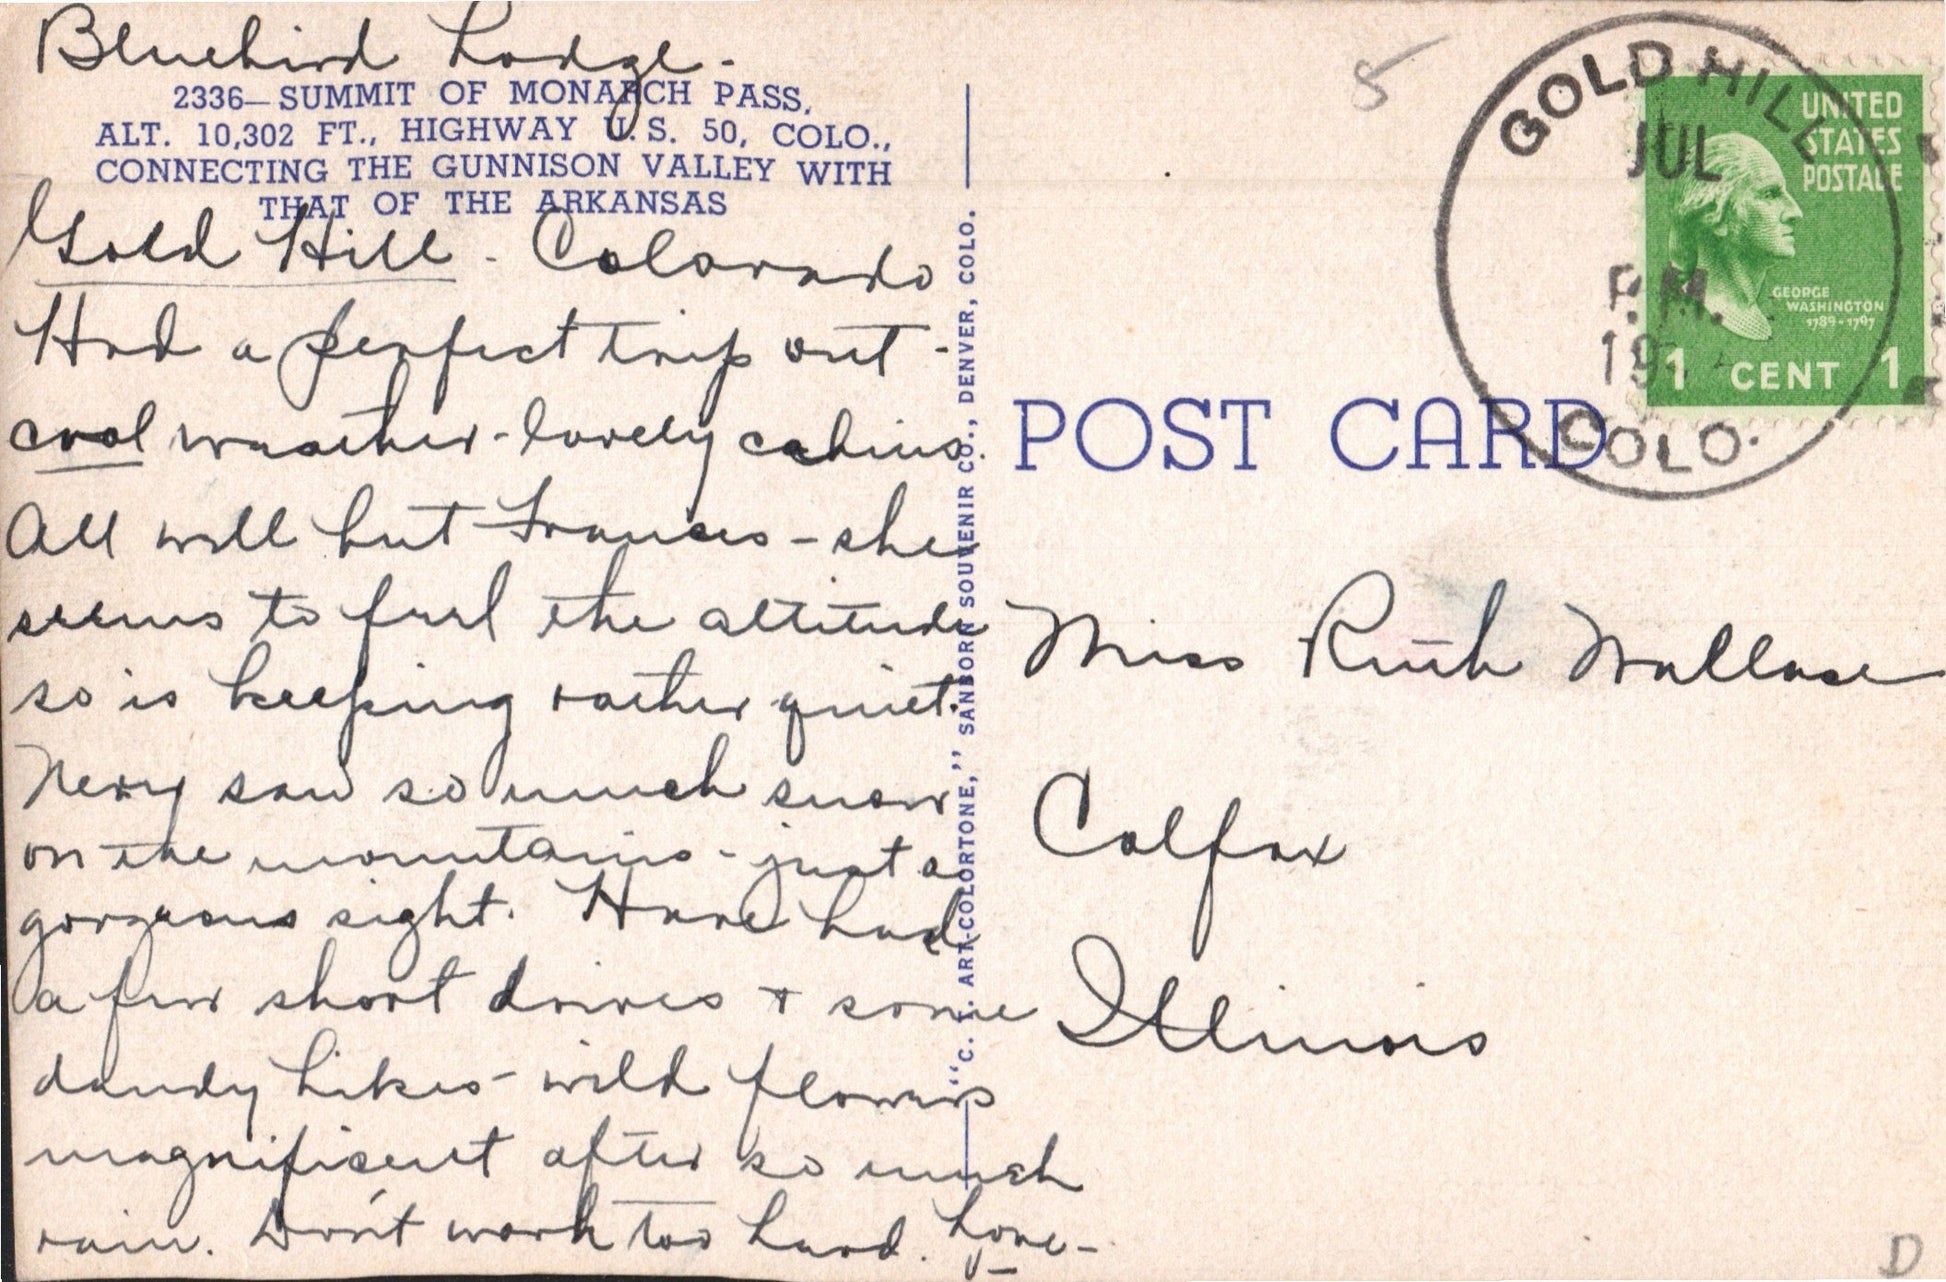 Bluebird Lodge -
2336—SUMMIT OF MONARCH PASS,
ALT. 10,302 FT., HIGHWAY U. S. 50, COLO.,
CONNECTING THE GUNNISON VALLEY WITH
THAT OF THE ARKANSAS
Gold Hill - Colorado
Had a perfect trip out -
cool weather - lovely cabins.
All well but Frances - she
seems to feel the altitude
so is keeping rather quiet.
Never saw so much snow
on the mountains - just a
gorgeous sight. Have had
a few short drives + some
dandy hikes - wild flowers
magnificent after so much
rain. Don't work too hard. Love -
"C. T. ART-COLORTONE," SANBORN SOUVENIR CO., DENVER, COLO.
POST CARD
5
GOLD HILL
JUL
P.M.
19
COLO.
UNITED
STATES
POSTAGE
GEORGE
WASHINGTON
1789-1797
1 CENT 1
Miss Ruth Wallace
Colfax
Illinois
D